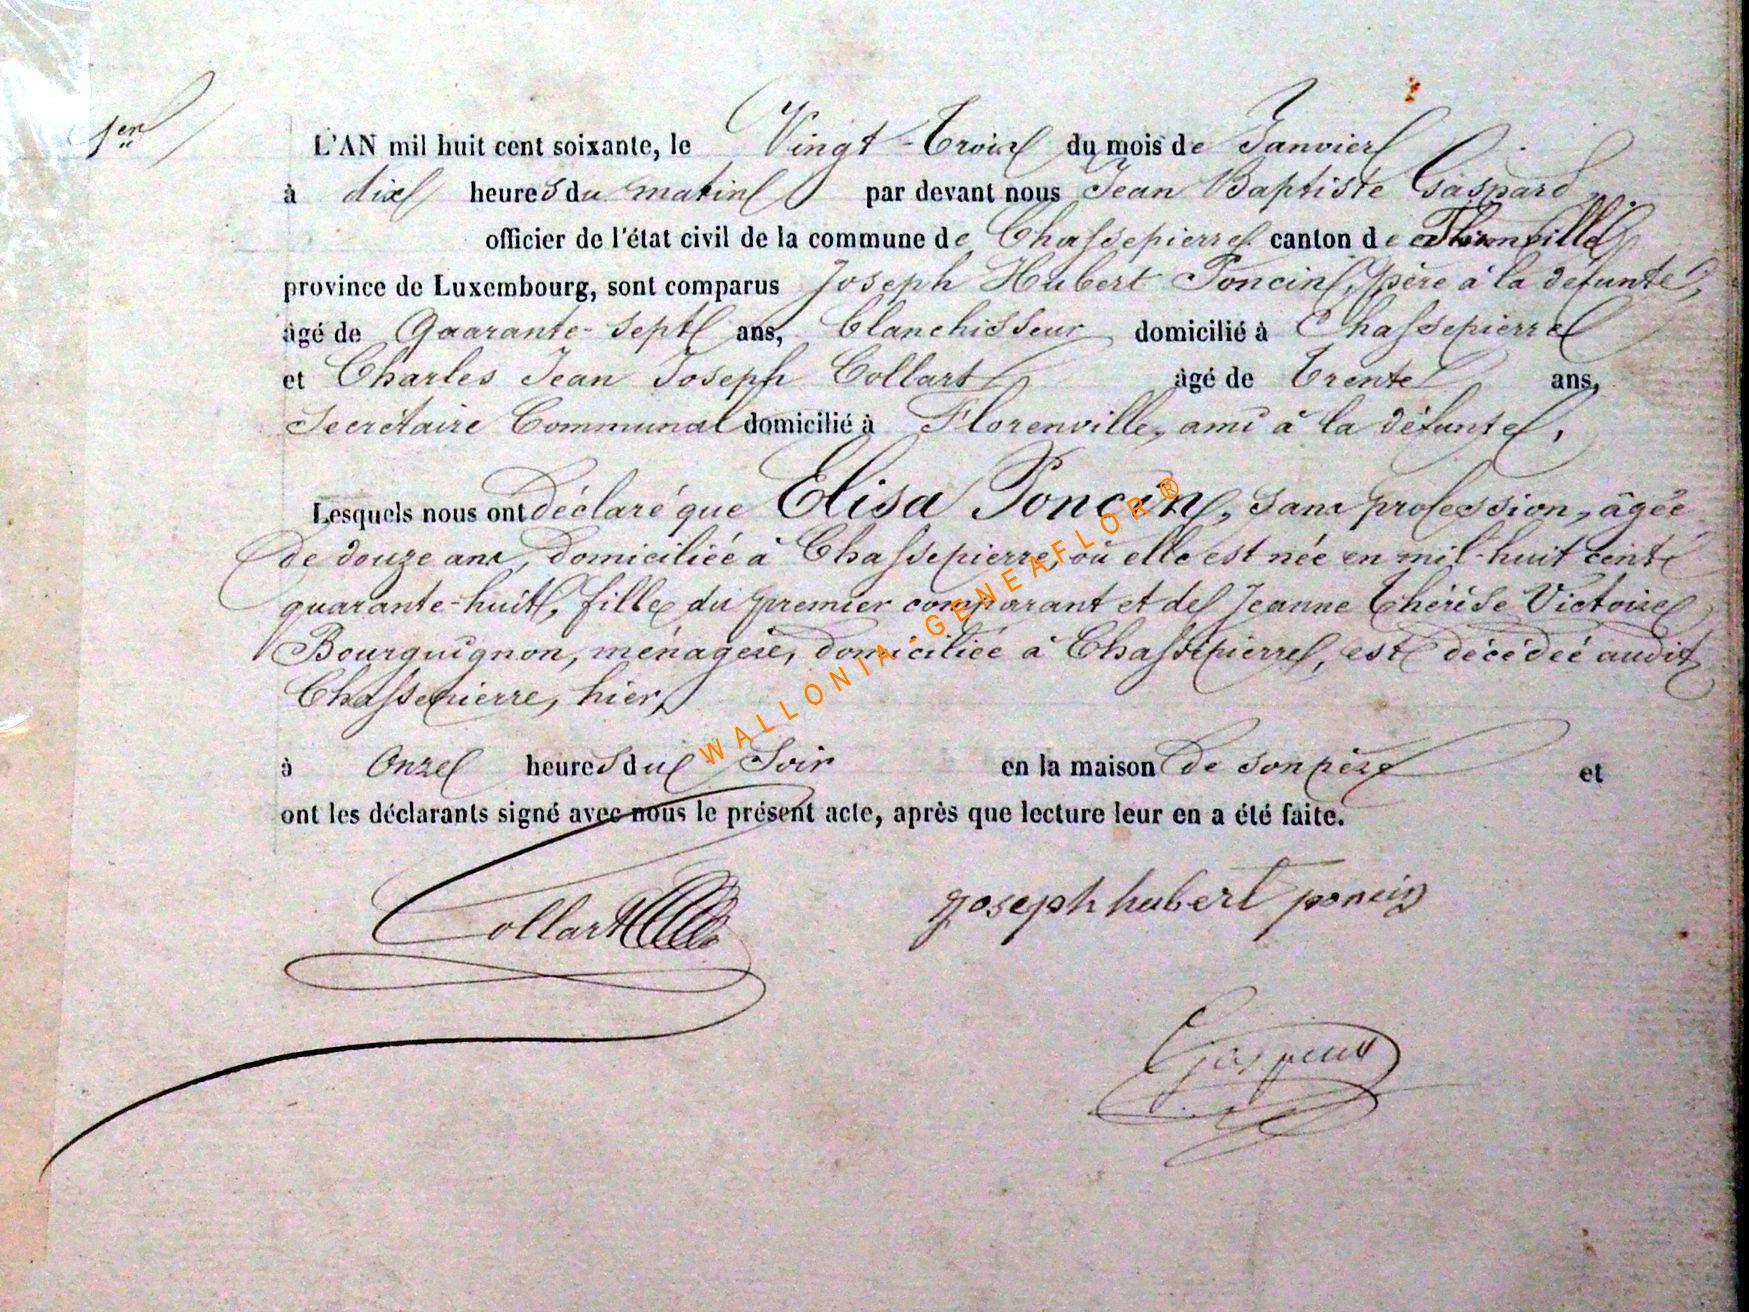 1er
L'AN mil huit cent soixante, le Vingt-Trois du mois de Janvier
à dix heures du matin par devant nous Jean Baptiste Gaspard
officier de l'état civil de la commune de Chassepierre canton de Florenville
province de Luxembourg, sont comparus Joseph Hubert Poncin, père à la défunte,
âgé de Quarante-sept ans, blanchisseur domicilié à Chassepierre
et Charles Jean Joseph Collart âgé de Trente ans,
Secrétaire Communal domicilié à Florenville, ami à la défunte,
Lesquels nous ont déclaré que Elisa Poncin, sans profession, âgée
de douze ans, domiciliée à Chassepierre, où elle est née en mil-huit cent
quarante-huit, fille du premier comparant et de Jeanne Thérèse Victoire
Bourguignon, ménagère, domiciliée à Chassepierre, est décédée audit
Chassepierre, hier,
à Onze heures du Soir en la maison de son père et
ont les déclarants signé avec nous le présent acte, après que lecture leur en a été faite.
Collart joseph hubert poncin
Gaspard
WALLONIA-GENEAFLOR®